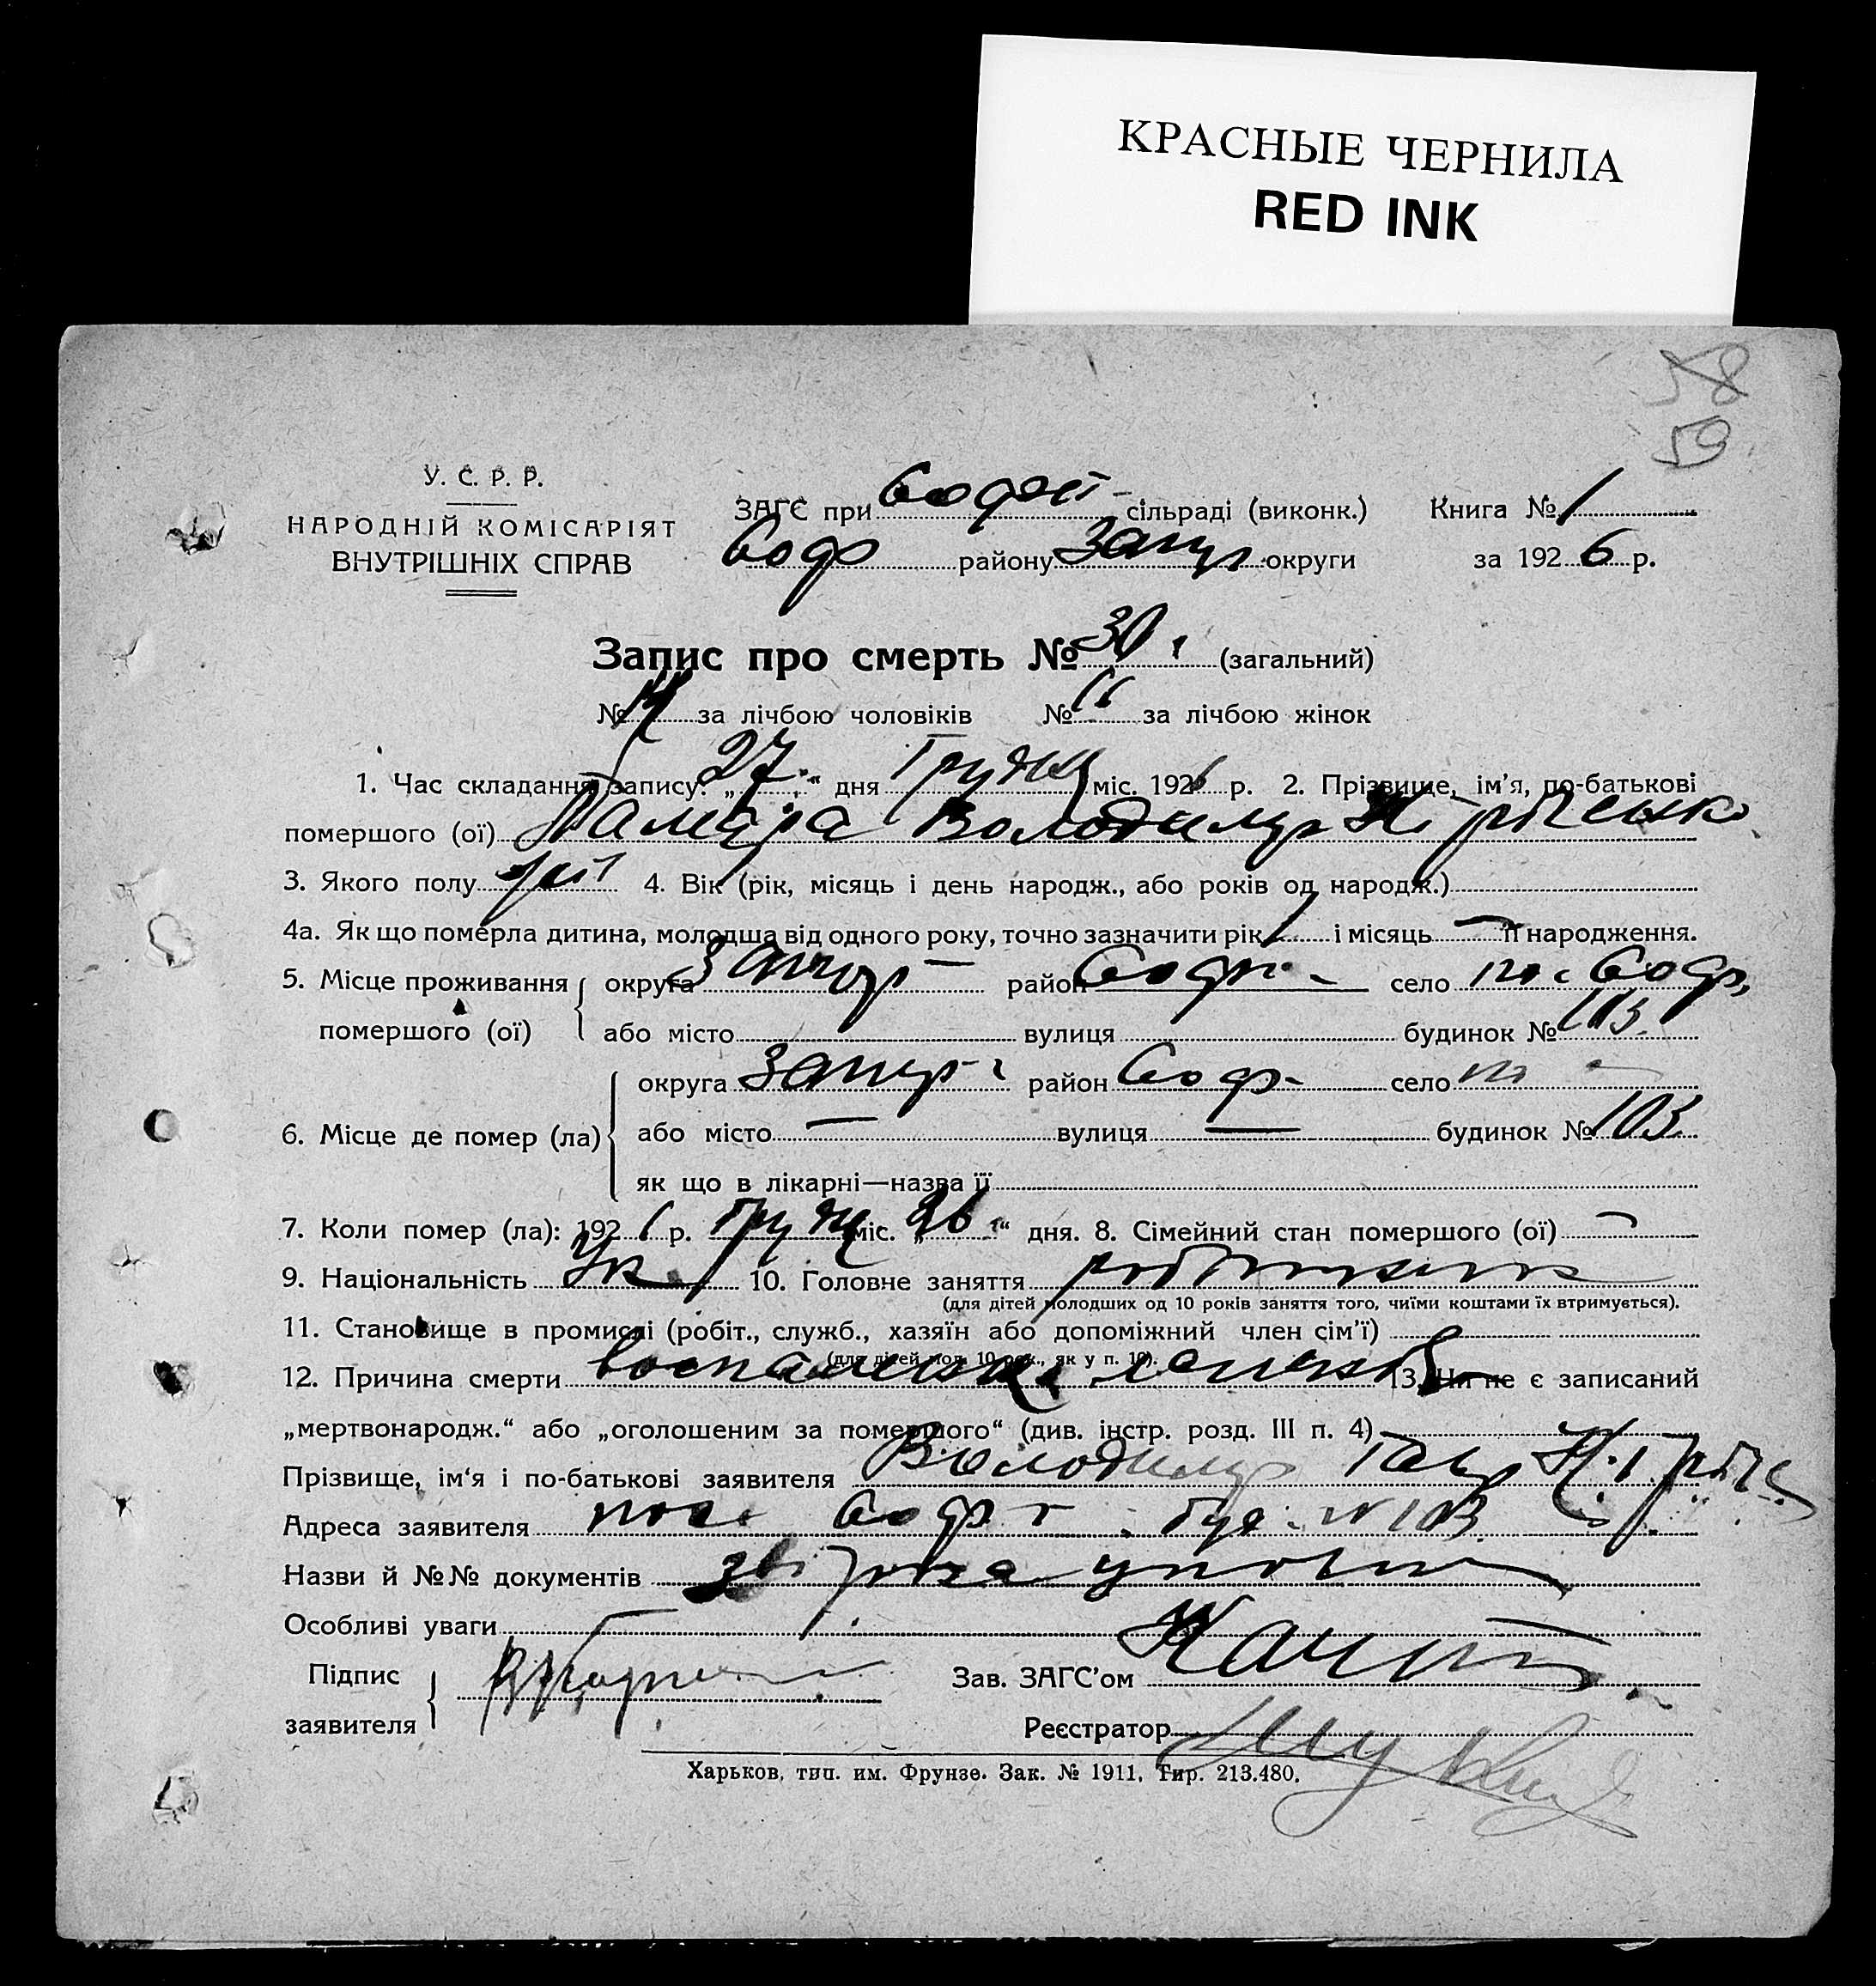 КРАСНЫЕ ЧЕРНИЛА
RED INK
58
59
У. С. Р. Р.
НАРОДНІЙ КОМІСАРІЯТ
ВНУТРІШНІХ СПРАВ
ЗАГС при Софії- сільраді (виконк.)
Соф району Запор округи
Книга № 1
за 1926 р.
Запис про смерть № 30 (загальний)
№ за лічбою чоловіків № 11 за лічбою жінок
1. Час складання запису: „27“ дня Грудня міс. 1926 р. 2. Прізвище, ім'я, по-батькові
помершого (ої) Тамара Володимир
3. Якого полу 4. Вік (рік, місяць і день народж., або років од народж.)
4а. Як що померла дитина, молодша від одного року, точно зазначити рік і місяць її народження.
5. Місце проживання помершого (ої) округа Запор район Софр село пос Соф
або місто вулиця будинок № 103
6. Місце де помер (ла) округа Запор район Соф село
або місто — вулиця — будинок № 103
як що в лікарні—назва її
7. Коли помер (ла): 1926 р. Грудня міс. „26“ дня. 8. Сімейний стан помершого (ої) —
9. Національність Укр 10. Головне заняття
(для дітей молодших од 10 років заняття того, чиїми коштами їх втримується).
11. Становище в промислі (робіт., служб., хазяїн або допоміжний член сім'ї)
(для дітей мол. 10 рок., як у п. 10).
12. Причина смерти 13. Чи не є записаний
„мертвонародж.“ або „оголошеним за помершого“ (див. інстр. розд. III п. 4)
Прізвище, ім'я і по-батькові заявителя Володимир Гавр
Адреса заявителя пос. Соф буд. N 103
Назви й №№ документів
Особливі уваги
Підпис заявителя
Зав. ЗАГС'ом
Реєстратор
Харьков, тип. им. Фрунзе. Зак. № 1911, Тир. 213.480.